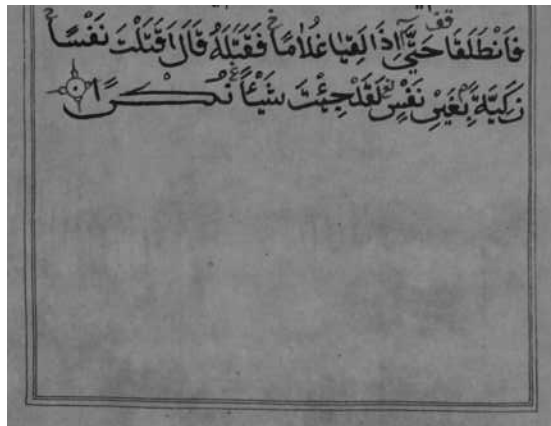 فَانْطَلَقَا حَتَّىٰ إِذَا لَقِيَا غُلَامًا فَقَتَلَهُ قَالَ اَقَتَلْتَ نَفْسًا
زَكِيَّةً بِغَيْرِ نَفْسٍ لَقَدْ جِئْتَ شَيْئًا نُكْرًا